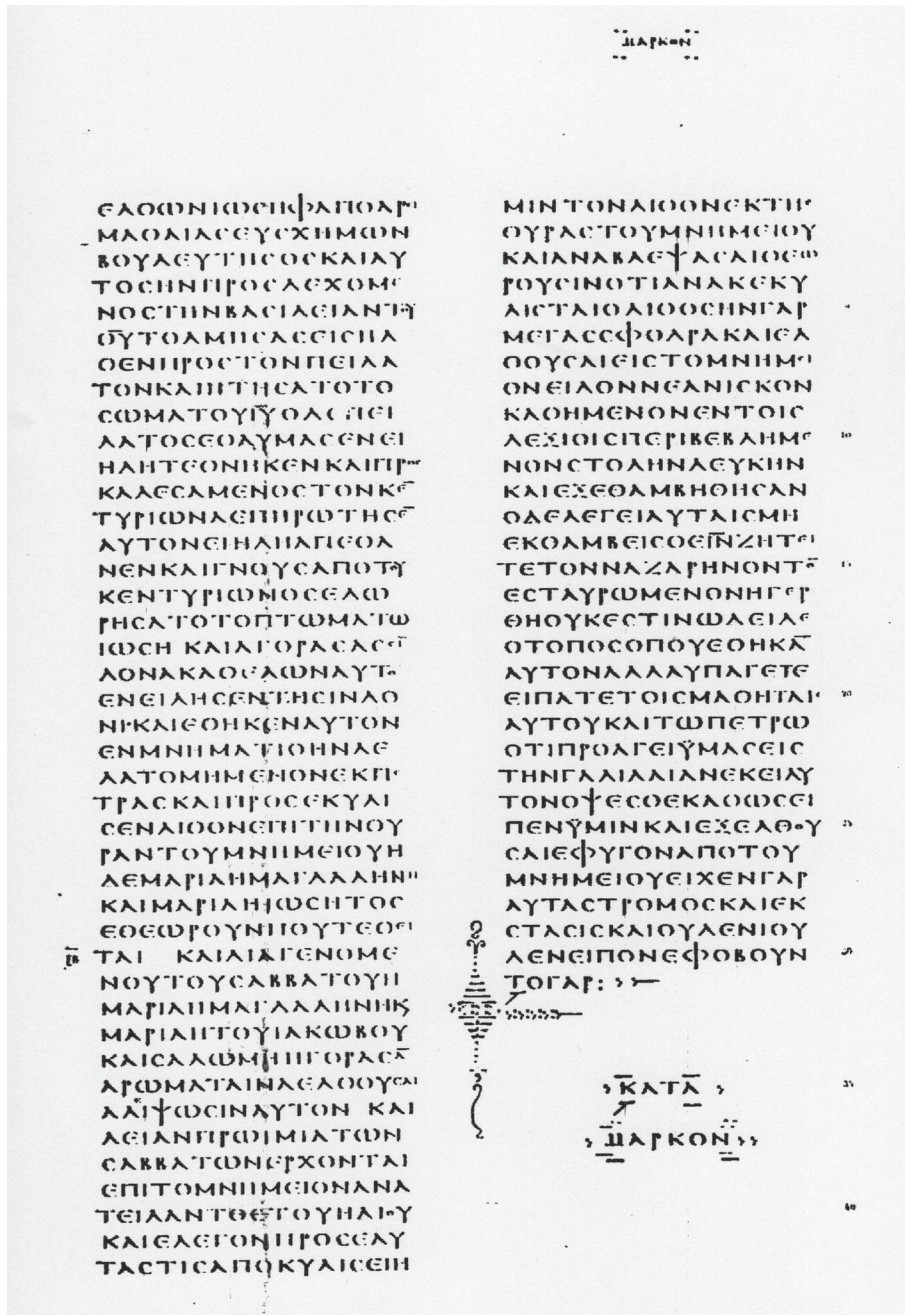 ΜΑΡΚΟΝ
ΕΛΘΩΝΙΩϹΗΦΑΠΟΑΡΙ
ΜΑΘΑΙΑϹΕΥϹΧΗΜΩΝ
ΒΟΥΛΕΥΤΗϹΟϹΚΑΙΑΥ
ΤΟϹΗΝΠΡΟϹΔΕΧΟΜΕ
ΝΟϹΤΗΝΒΑϹΙΛΕΙΑΝΤΟΥ
Θ̅Υ̅ΤΟΛΜΗϹΑϹΕΙϹΗΛ
ΘΕΝΠΡΟϹΤΟΝΠΕΙΛΑ
ΤΟΝΚΑΙΗΤΗϹΑΤΟΤΟ
ϹΩΜΑΤΟΥΙ̅Υ̅ΟΔΕΠΕΙ
ΛΑΤΟϹΕΘΑΥΜΑϹΕΝΕΙ
ΗΔΗΤΕΘΝΗΚΕΝΚΑΙΠΡΟϹ
ΚΑΛΕϹΑΜΕΝΟϹΤΟΝΚΕ̅
ΤΥΡΙΩΝΑΕΠΗΡΩΤΗϹΕ̅
ΑΥΤΟΝΕΙΗΔΗΑΠΕΘΑ
ΝΕΝΚΑΙΓΝΟΥϹΑΠΟΤΟΥ
ΚΕΝΤΥΡΙΩΝΟϹΕΔΩ
ΡΗϹΑΤΟΤΟΠΤΩΜΑΤΩ
ΙΩϹΗ ΚΑΙΑΓΟΡΑϹΑϹϹΙ̅
ΔΟΝΑΚΑΘΕΛΩΝΑΥΤΟ
ΕΝΕΙΛΗϹΕΝΤΗϹΙΝΔΟ
ΝΙΚΑΙΕΘΗΚΕΝΑΥΤΟΝ
ΕΝΜΝΗΜΑΤΙΟΗΝΛΕ
ΛΑΤΟΜΗΜΕΝΟΝΕΚΠΕ
ΤΡΑϹΚΑΙΠΡΟϹΕΚΥΛΙ
ϹΕΝΛΙΘΟΝΕΠΙΤΗΝΘΥ
ΡΑΝΤΟΥΜΝΗΜΕΙΟΥΗ
ΔΕΜΑΡΙΑΗΜΑΓΔΑΛΗΝΗ
ΚΑΙΜΑΡΙΑΗΙΩϹΗΤΟϹ
ΕΘΕΩΡΟΥΝΠΟΥΤΕΘΕΙ
ΤΑΙ ΚΑΙΔΙΑΓΕΝΟΜΕ
ΝΟΥΤΟΥϹΑΒΒΑΤΟΥΗ
ΜΑΡΙΑΗΜΑΓΔΑΛΗΝΗΚ
ΜΑΡΙΑΗΤΟΥΙΑΚΩΒΟΥ
ΚΑΙϹΑΛΩΜΗΗΓΟΡΑϹΑ̅
ΑΡΩΜΑΤΑΙΝΑΕΛΘΟΥϹΑΙ
ΑΛΙΨΩϹΙΝΑΥΤΟΝ ΚΑΙ
ΛΕΙΑΝΠΡΩΙΜΙΑΤΩΝ
ϹΑΒΒΑΤΩΝΕΡΧΟΝΤΑΙ
ΕΠΙΤΟΜΝΗΜΕΙΟΝΑΝΑ
ΤΕΙΛΑΝΤΟϹΤΟΥΗΛΙΟΥ
ΚΑΙΕΛΕΓΟΝΠΡΟϹΕΑΥ
ΤΑϹΤΙϹΑΠΟΚΥΛΙϹΕΙΗ
ΜΙΝΤΟΝΛΙΘΟΝΕΚΤΗϹ
ΘΥΡΑϹΤΟΥΜΝΗΜΕΙΟΥ
ΚΑΙΑΝΑΒΛΕΨΑϹΑΙΘΕΩ
ΡΟΥϹΙΝΟΤΙΑΝΑΚΕΚΥ
ΛΙϹΤΑΙΟΛΙΘΟϹΗΝΓΑΡ
ΜΕΓΑϹϹΦΟΔΡΑΚΑΙΕΛ
ΘΟΥϹΑΙΕΙϹΤΟΜΝΗΜΕΙ
ΟΝΕΙΔΟΝΝΕΑΝΙϹΚΟΝ
ΚΑΘΗΜΕΝΟΝΕΝΤΟΙϹ
ΔΕΞΙΟΙϹΠΕΡΙΒΕΒΛΗΜΕ
ΝΟΝϹΤΟΛΗΝΛΕΥΚΗΝ
ΚΑΙΕΞΕΘΑΜΒΗΘΗϹΑΝ
ΟΔΕΛΕΓΕΙΑΥΤΑΙϹΜΗ
ΕΚΘΑΜΒΕΙϹΘΕΙ̅Ν̅ΖΗΤΕΙ
ΤΕΤΟΝΝΑΖΑΡΗΝΟΝΤΟ̅
ΕϹΤΑΥΡΩΜΕΝΟΝΗΓΕΡ
ΘΗΟΥΚΕϹΤΙΝΩΔΕΙΔΕ
ΟΤΟΠΟϹΟΠΟΥΕΘΗΚΑ̅
ΑΥΤΟΝΑΛΛΑΥΠΑΓΕΤΕ
ΕΙΠΑΤΕΤΟΙϹΜΑΘΗΤΑΙϹ
ΑΥΤΟΥΚΑΙΤΩΠΕΤΡΩ
ΟΤΙΠΡΟΑΓΕΙΫΜΑϹΕΙϹ
ΤΗΝΓΑΛΙΛΑΙΑΝΕΚΕΙΑΥ
ΤΟΝΟΨΕϹΘΕΚΑΘΩϹΕΙ
ΠΕΝΫΜΙΝΚΑΙΕΞΕΛΘΟΥ
ϹΑΙΕΦΥΓΟΝΑΠΟΤΟΥ
ΜΝΗΜΕΙΟΥΕΙΧΕΝΓΑΡ
ΑΥΤΑϹΤΡΟΜΟϹΚΑΙΕΚ
ϹΤΑϹΙϹΚΑΙΟΥΔΕΝΙΟΥ
ΔΕΝΕΙΠΟΝΕΦΟΒΟΥΝ
ΤΟΓΑΡ:
ΚΑΤΑ
ΜΑΡΚΟΝ